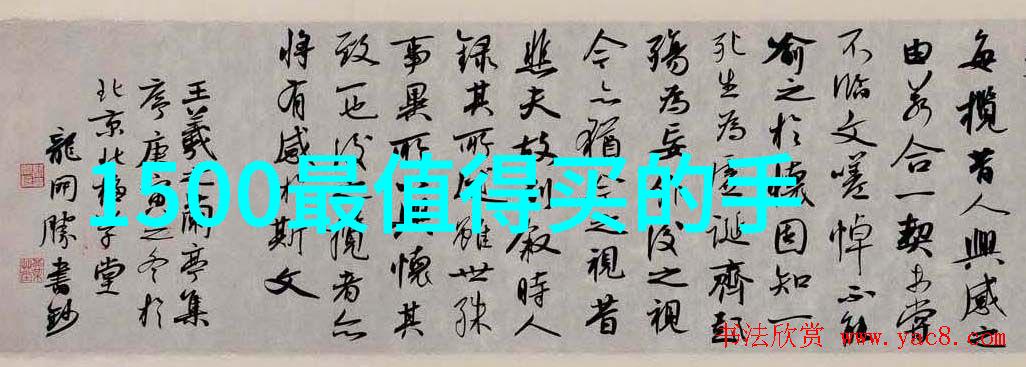 每攬昔人興感之
由若合一契未嘗
不臨文嗟悼不能
喻之於懷固知一
死生為虛誕齊彭
殤為妄作後之視
今亦猶今之視昔
悲夫故列叙時人
錄其所述雖世殊
事異所懷其
致一也後攬者亦
將有感於斯文
王羲之蘭亭集
序庚寅之冬於
北京北子堂
龍開勝書鈔
1500最值得买的手
书法欣赏 www.yac8.com